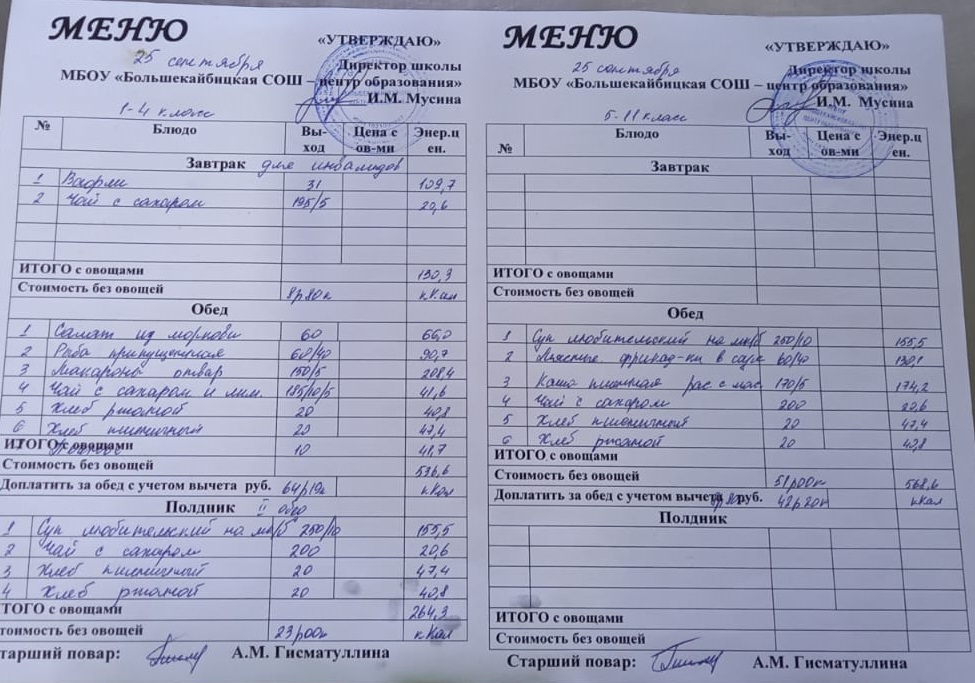 МЕНЮ
«УТВЕРЖДАЮ»
25 сентября
Директор школы
МБОУ «Большекайбицкая СОШ – центр образования»
И.М. Мусина
1-4 класс
№ Блюдо Вы-ход Цена с ов-ми Энер.ц ен.
Завтрак для инвалидов
1 Вафли 31 109,7
2 Чай с сахаром 195/5 20,6
ИТОГО с овощами 130,3
Стоимость без овощей 8р80к кКал
Обед
1 Салат из моркови 60 66,0
2 Рыба припущенная 60/40 90,7
3 Макароны отвар 150/5 208,4
4 Чай с сахаром и лим. 185/10/5 41,6
5 Хлеб ржаной 20 40,8
6 Хлеб пшеничный 20 47,4
ИТОГО с овощами 10 41,7
Стоимость без овощей 536,6
Доплатить за обед с учетом вычета руб. 64р19к кКал
Полдник II обед
1 Суп любительский на м/б 250/10 155,5
2 Чай с сахаром 200 20,6
3 Хлеб пшеничный 20 47,4
4 Хлеб ржаной 20 40,8
ТОГО с овощами 264,3
тоимость без овощей 23р00к кКал
тарший повар: А.М. Гисматуллина
МЕНЮ
«УТВЕРЖДАЮ»
25 сентября
Директор школы
МБОУ «Большекайбицкая СОШ – центр образования»
И.М. Мусина
5-11 класс
№ Блюдо Вы-ход Цена с ов-ми Энер.ц ен.
Завтрак
ИТОГО с овощами
Стоимость без овощей
Обед
1 Суп любительский на м/б 250/10 155,5
2 Мясные фрикад-ки в 60/40 130,1
3 Каша пшенная рас с мас. 170/5 174,2
4 Чай с сахаром 200 20,6
5 Хлеб пшеничный 20 47,4
6 Хлеб ржаной 20 40,8
ИТОГО с овощами
Стоимость без овощей 51р00к 568,6
Доплатить за обед с учетом вычета руб. 42р20к кКал
Полдник
ИТОГО с овощами
Стоимость без овощей
Старший повар: А.М. Гисматуллина